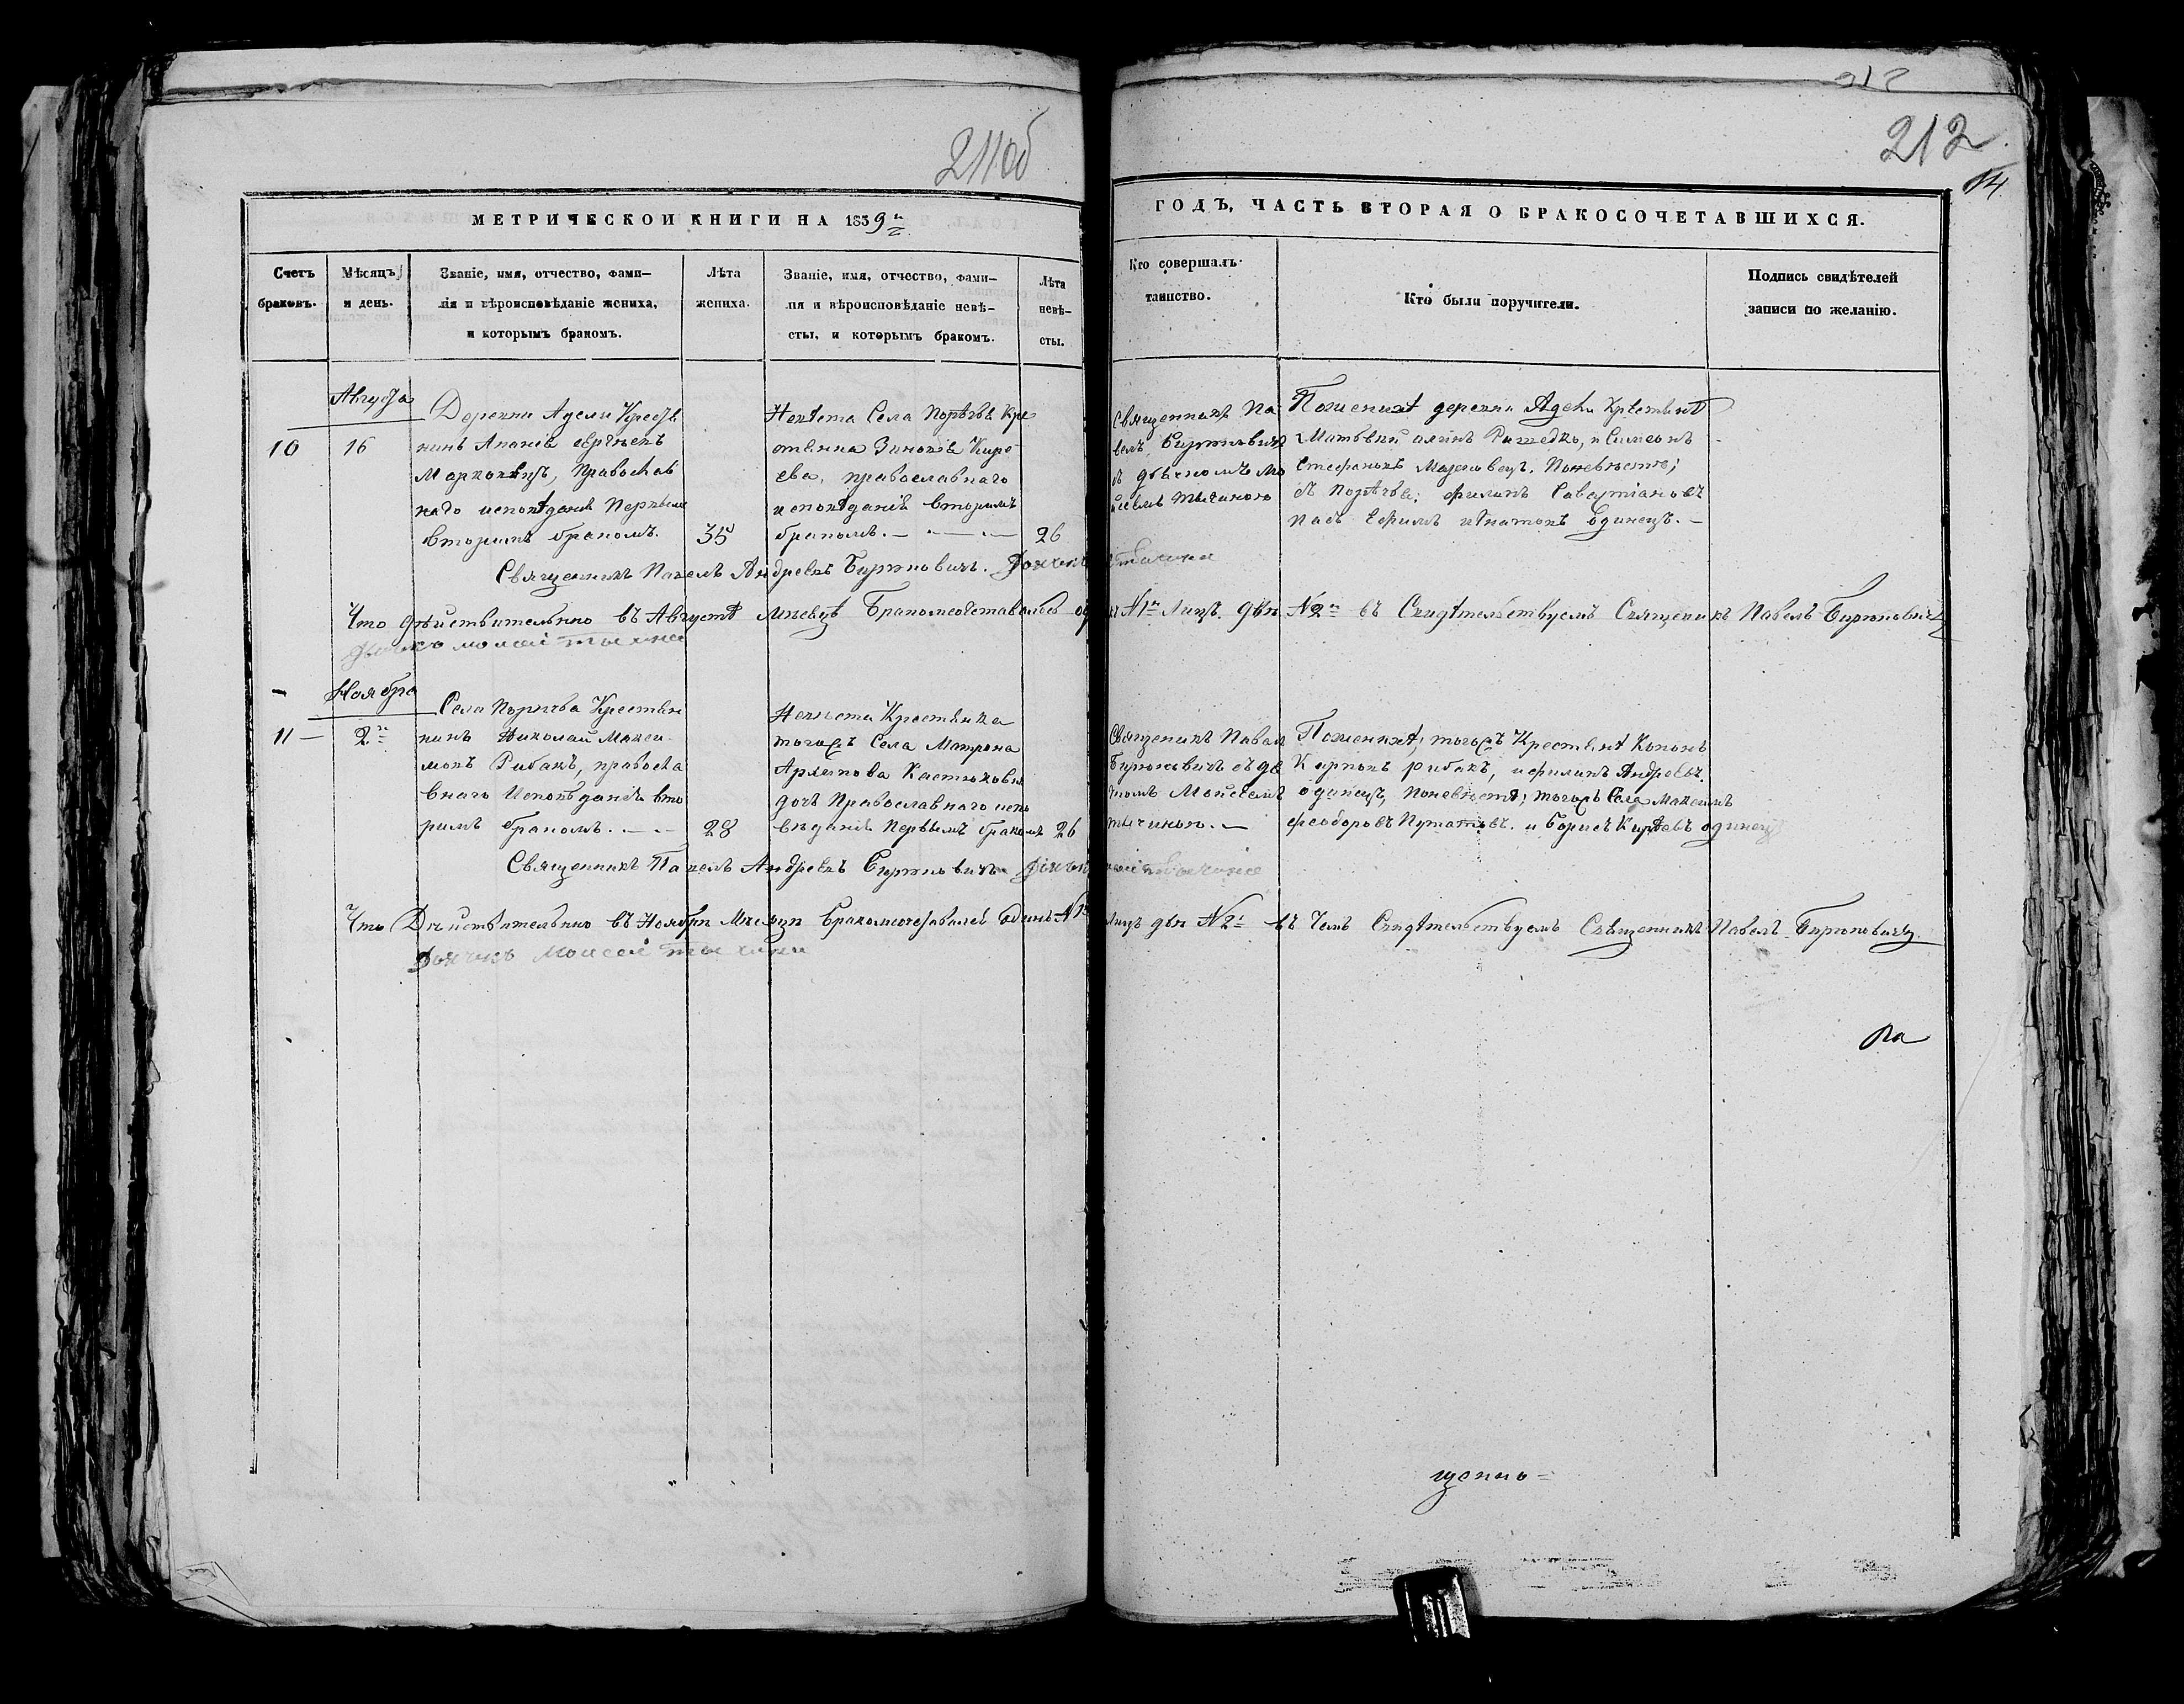 212
211об
212.
14.
МЕТРИЧЕСКОЙ КНИГИ НА 1839й
ГОДЪ, ЧАСТЬ ВТОРАЯ О БРАКОСОЧЕТАВШИХСЯ.
Счетъ
браковъ.
Мѣсяцъ
и день.
Званіе, имя, отчество, фами-
лія и вѣроисповѣданіе жениха,
и которымъ бракомъ.
Лѣта
жениха.
Званіе, имя, отчество, фами-
лія и вѣроисповѣданіе невѣ-
сты, и которымъ бракомъ.
Лѣта
невѣ-
сты.
Кто совершалъ
таинство.
Кто были поручители.
Подпись свидѣтелей
записи по желанію.
10
Августа
16
Деревни Адели Крестья
нинъ
Марковецъ, Православ
наго исповѣданія
вторимъ бракомъ.
35
Невѣста Села Порѣчъя Кре
Зиновія Кире
ева, православнаго
исповѣданія вторимъ
бракомъ. —
26
Священникъ Па
велъ Бирюковичъ
съ дьячкомъ Мо
исеемъ Тычиною
По женихѣ деревни Адели Крестьянѣ
и Симеонъ
Стефановъ Марковецъ. По невѣсте;
съ Порѣчъя; Филипъ
Ефимъ Игнатовъ Одинецъ. —
Священникъ Павелъ Андреевъ Бирюковичъ. Дьячокъ Тычина
Что дѣйствительно въ Августѣ мѣсяцѣ Бракомсочетавалось №1й Лицъ два №2й въ Свидѣтельствуемъ Священникъ Павелъ Бирюковичъ
Дьячокъ Моисей Тычина
11 —
Ноября
2й
Села Порѣчъя Крестьян
нинъ Николай Макси
мовъ Рибакъ, правосла
внаго Исповѣданія вто
римъ бракомъ. — —
28
Невѣста Крестьянка
тогожъ Села Матрона
Архипова Костюкова
дочь Православнаго испо
вѣданія Первымъ бракомъ
26
Священикъ Павелъ
Бирюковичъ съ дя
чкомъ Мойсеемъ
Тычиною. —
По женихѣ; тогожъ Крестьянѣ Кононъ
Карповъ рибакъ, и филипъ Андреевъ.
одинецъ, по невѣстѣ; тогожъ Села Максимъ
Феодоровъ Путятовъ. и Борисъ Кирѣевъ одинецъ
Священникъ Павелъ Андреевъ Бирюковичъ Дьячокъ Моисей Тычина
Что Дѣйствительно въ Ноябрѣ Мѣсяцѣ Бракомсочетавалось одинъ №1й лицъ два №2й въ Чемъ Свидѣтельствуемъ Священникъ Павелъ Бирюковичъ.
Дьячокъ Моисей Тычина
Ра